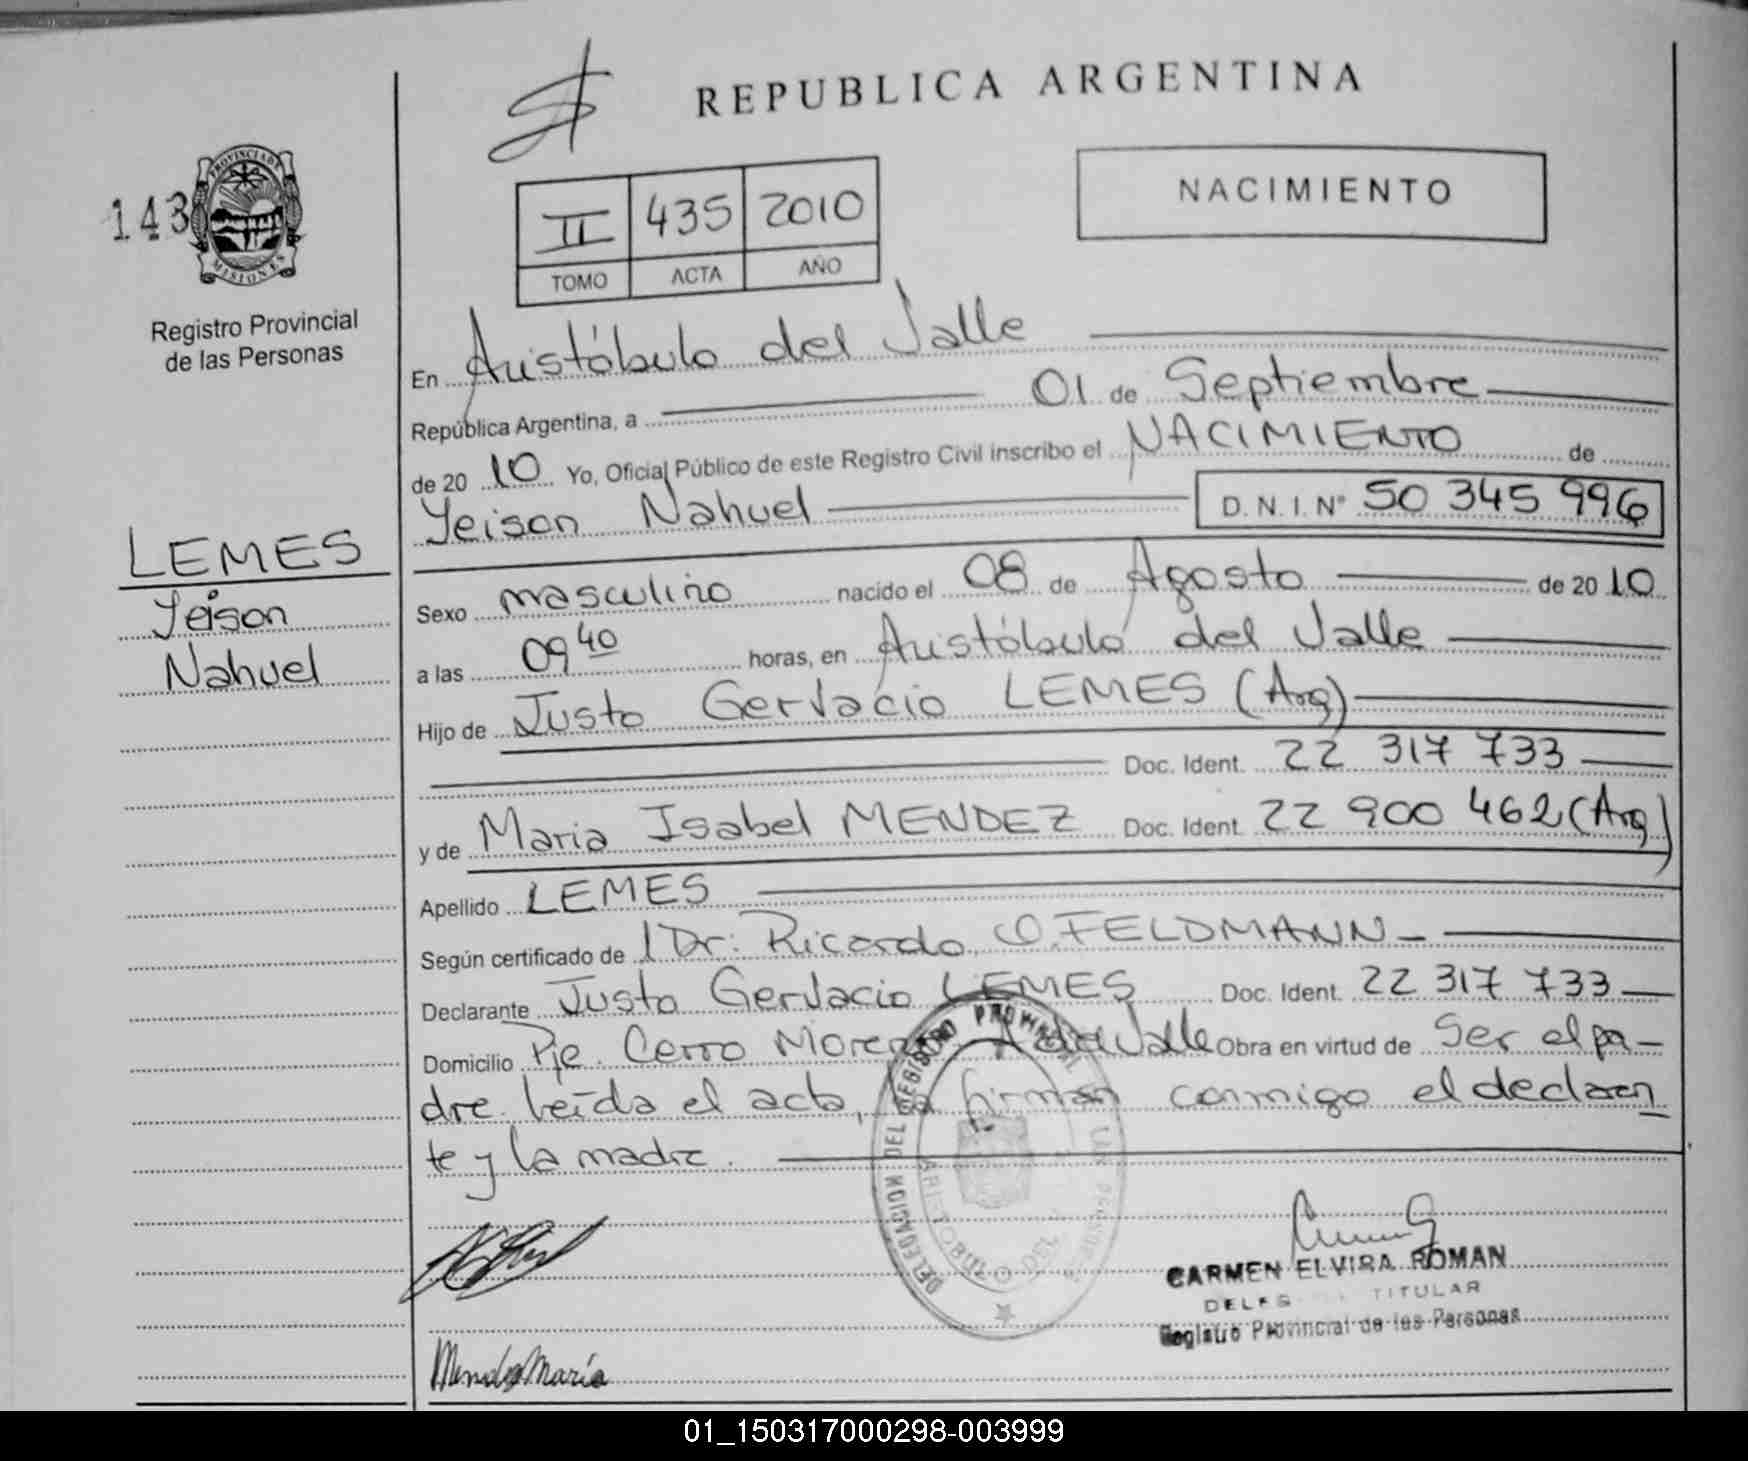 REPUBLICA ARGENTINA
143
PROVINCIA DE
MISIONES
Registro Provincial
de las Personas
II 435 2010
TOMO ACTA AÑO
NACIMIENTO
En Aristóbulo del Valle
República Argentina, a 01 de Septiembre
de 20 10 Yo, Oficial Público de este Registro Civil inscribo el NACIMIENTO de
Yeison Nahuel D.N.I. N° 50 345 996
LEMES
Yeison
Nahuel
Sexo masculino nacido el 08 de Agosto de 20 10
a las 09 40 horas, en Aristóbulo del Valle
Hijo de Justo Gervacio LEMES (Arg)
Doc. Ident. 22 317 733
y de Maria Isabel MENDEZ Doc. Ident. 22 900 462 (Arg)
Apellido LEMES
Según certificado de Dr. Ricardo O. FELDMANN
Declarante Justo Gervacio LEMES Doc. Ident. 22 317 733
Domicilio Pje. Cerro Moreno Valle Obra en virtud de Ser el pa-
dre. leída el acta, la firman conmigo el declaran
te y la madre.
DELEGACION DEL REGISTRO PROVINCIAL
ARISTOBULO DEL
CARMEN ELVIRA ROMAN
TITULAR
Registro Provincial de las Personas
Mendez María
01_150317000298-003999